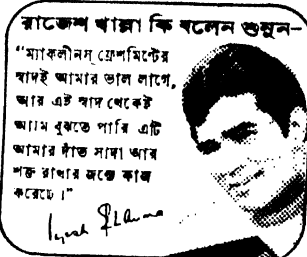 রাজেশ খান্না কি বলেন শুনুন-
“ম্যাকলীনস্ ফ্রেশমিন্টের
স্বাদই আমার ভাল লাগে,
আর এই স্বাদ থেকেই
আমি বুঝতে পারি এটি
আমার দাঁত সাদা আর
শক্ত রাখার জন্যে কাজ
করেছে।”